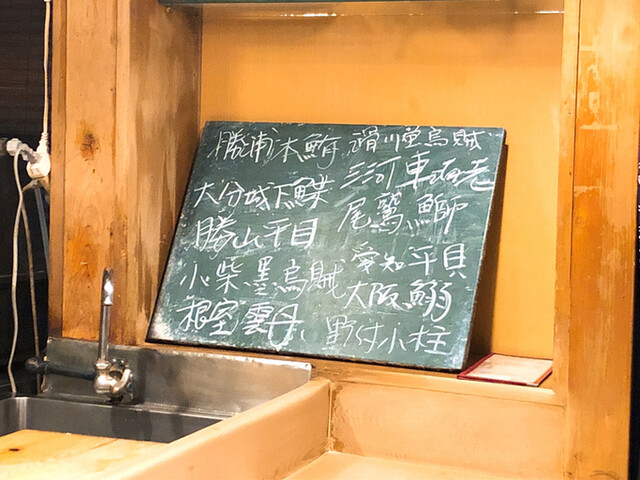 勝浦本鮪
大分城下鰈
勝山平目
小柴墨烏賊
根室雲丹
滑川蛍烏賊
三河車海老
尾鷲鰤
愛知平貝
大阪鰯
野付小柱